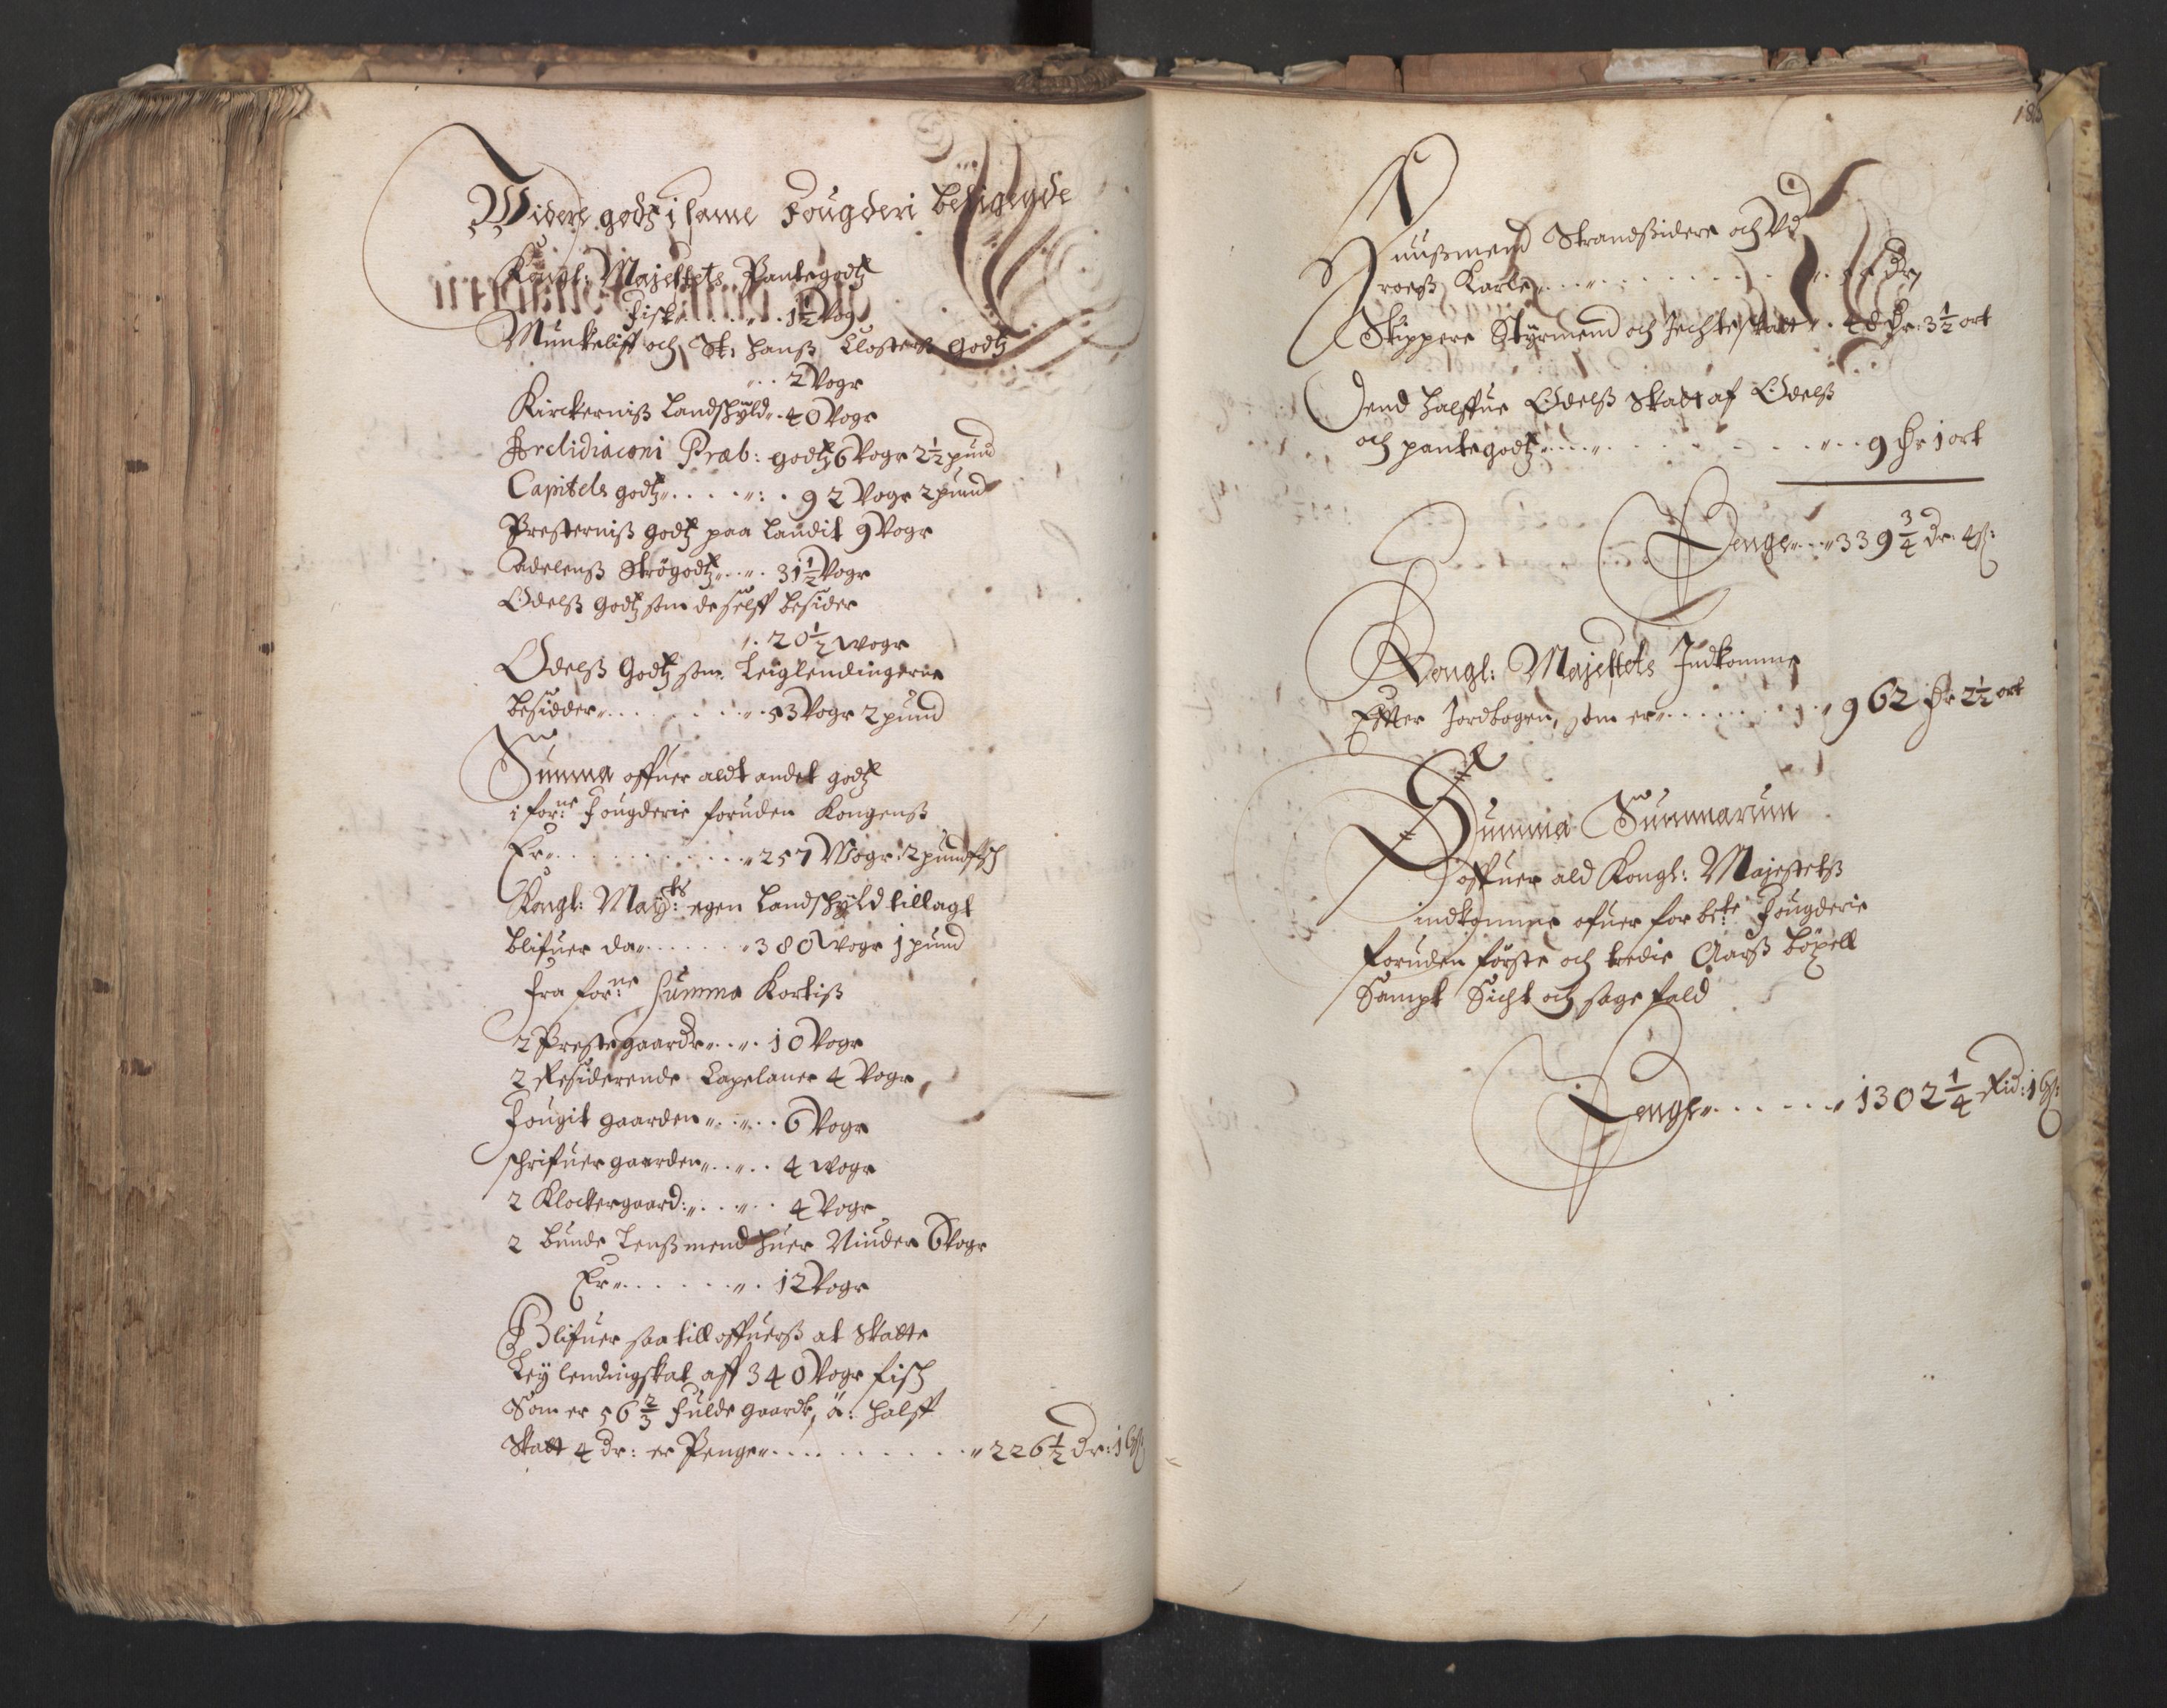 Widere godtz i same Fougderi beligende
Kongl: Majestets Pantegodtz
Fisk„ . . „ . 1½ Vog
Munkeliff och St: Hanß Closters Godtz
„ . . 2 Vogr
Kirckerniß Landschyld„ . 40 Vogr
Archidiaconi Præb: godtz 6 Vogr 2½ pund
Capitels godtz„ . . . . „ : . 92 Vogr 2 pund
Presterniß Godtz paa Landit 9 Vogr
Adelenß Strögodtz„ . . „ . 31½ Vogr
Odelß Godtz som de self besider
„ . 20½ wogr
Odelß Godtz som Leiglendingerne
besidder„ . . . . . . . „ . 53 Vogr 2 pund
Summa offuer aldt andet godtz
i for:ne Fougderie foruden Kongenß
Er„ . . . . . . . . . „ 257 Wogr: 2 pund fisch
Kongl: May:sts egen Landschyld tillagt
blifuer da„ . . . . . . „ 380 wogr 1 pund
Fra for:ne Summa Kortiß
2 Prestegaarde„ . . „ . 10 Vogr
2 Residerende Capelaner 4 Vogr
Fougit gaarden„ . . „ . . 6 Vogr
schrifuer gaarden„ . . „ . . 4 wogr
2 Klockergaard:„ . . . „ . . 4 Vogr
2 bunde Lenßmend huer Niuder 6 Vogr
Er„ . . . . . . „ . 12 Vogr
Blifuer saa till offuerß at Skatte
Leylendingskat aff 340 Vogr fisch
Som er 56⅔ fulde gaarde, á: halff
Skatt 4 dr: er Penge„ . . . . . . . . . . „ 226½ dr: 16 ß:
Huußmend Strandßidere och Vd
roerß Karle„ . . . „ . . . . . . . . .
Skippere Styrmend och Jechteskatt „ . 48 dr: 3½ ort
Dend halffue Odelß Skatt af Odelß
och pantegodtz„ . . . „ . . . . . . . . „ . . 9 dr 1 ort
Penge„ . . „ 339¾ dr: 4 ß:
Kongl: Majestets Indkomme
Efter Jordbogen, som er„ . . . . . . . . „ 962 dr 2½ ort
Summa Summarum
offuer ald Kongl: Majestetß
indkomme ofuer forbete: Fougderie
foruden förste och tredie Aarß böxell
Sampt Sicht och sagefald
Penge„ . . . . . „ 1302¼ Rid: 16 ß: